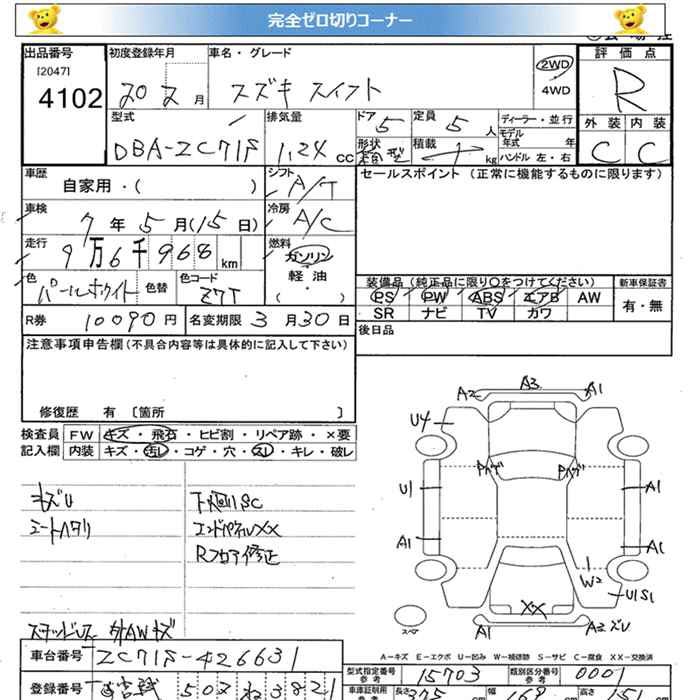 完全ゼロ切りコーナー
出品番号 初度登録年月 車名・グレード 評価点
[2047] 2WD
4102 20 2月 スズキ スイフト 4WD R
型式 排気量 ドア 定員 ディーラー・並行 外装 内装
5 5人 モデル年式 年
DBA-ZC71S 1.24 CC 形状 積載 kg ハンドル 左・右 C C
車歴 シフト セールスポイント (正常に機能するものに限ります)
自家用・( ) A/T
車検 冷房
7年5月(15日) A/C
走行 燃料
9万6千968 km ガソリン
色 色替 色コード 軽・油
パールホワイト Z7T ( ・ )
装備品 (純正品に限り○をつけてください) 新車保証書
PS PW ABS エアB AW 有・無
SR ナビ TV カワ
R券 10090円 名変期限 3月30日
後日品
注意事項申告欄(不具合内容等は具体的に記入して下さい)
修復歴 有 〔箇所 〕
検査員 FW キズ・飛石・ヒビ割・リペア跡・×要
記入欄 内装 キズ・汚レ・コゲ・穴・スレ・キレ・破レ
キズU 下廻りSC
シートヘタリ エンドパネルXX
Rフロア修正
スタッドレス 外AWキズ
A2 A3 A1
U4
U1 A1
A1 A1
W2
U1S1
XX
スペア A1
A…キズ E…エクボ U…凹み W…補修跡 S…サビ C…腐食 XX…交換済
車台番号 ZC71S-426631
型式指定番号 参考 15703 類別区分番号 参考 0001
登録番号 502 3821
車庫証明用 長さ 375 cm 幅 cm 高さ cm